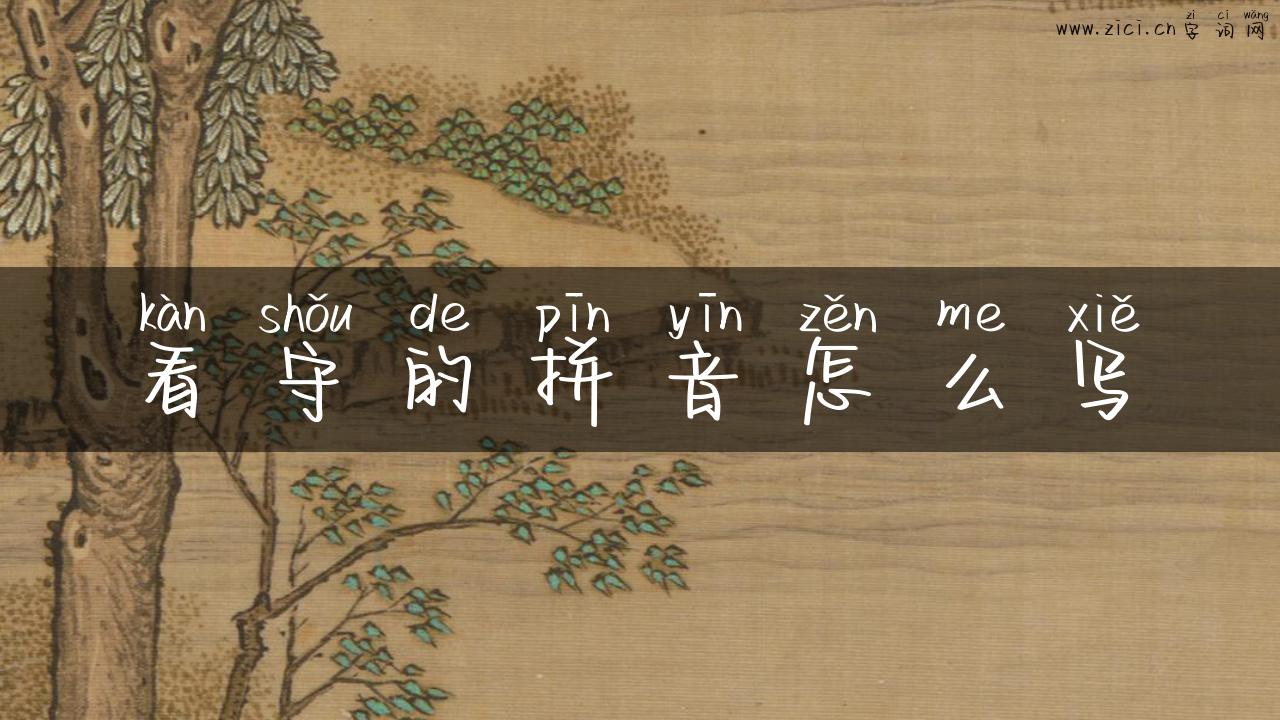 zì cí wǎng
www.zici.cn 字词网
kàn shǒu de pīn yīn zěn me xiě
看守的拼音怎么写